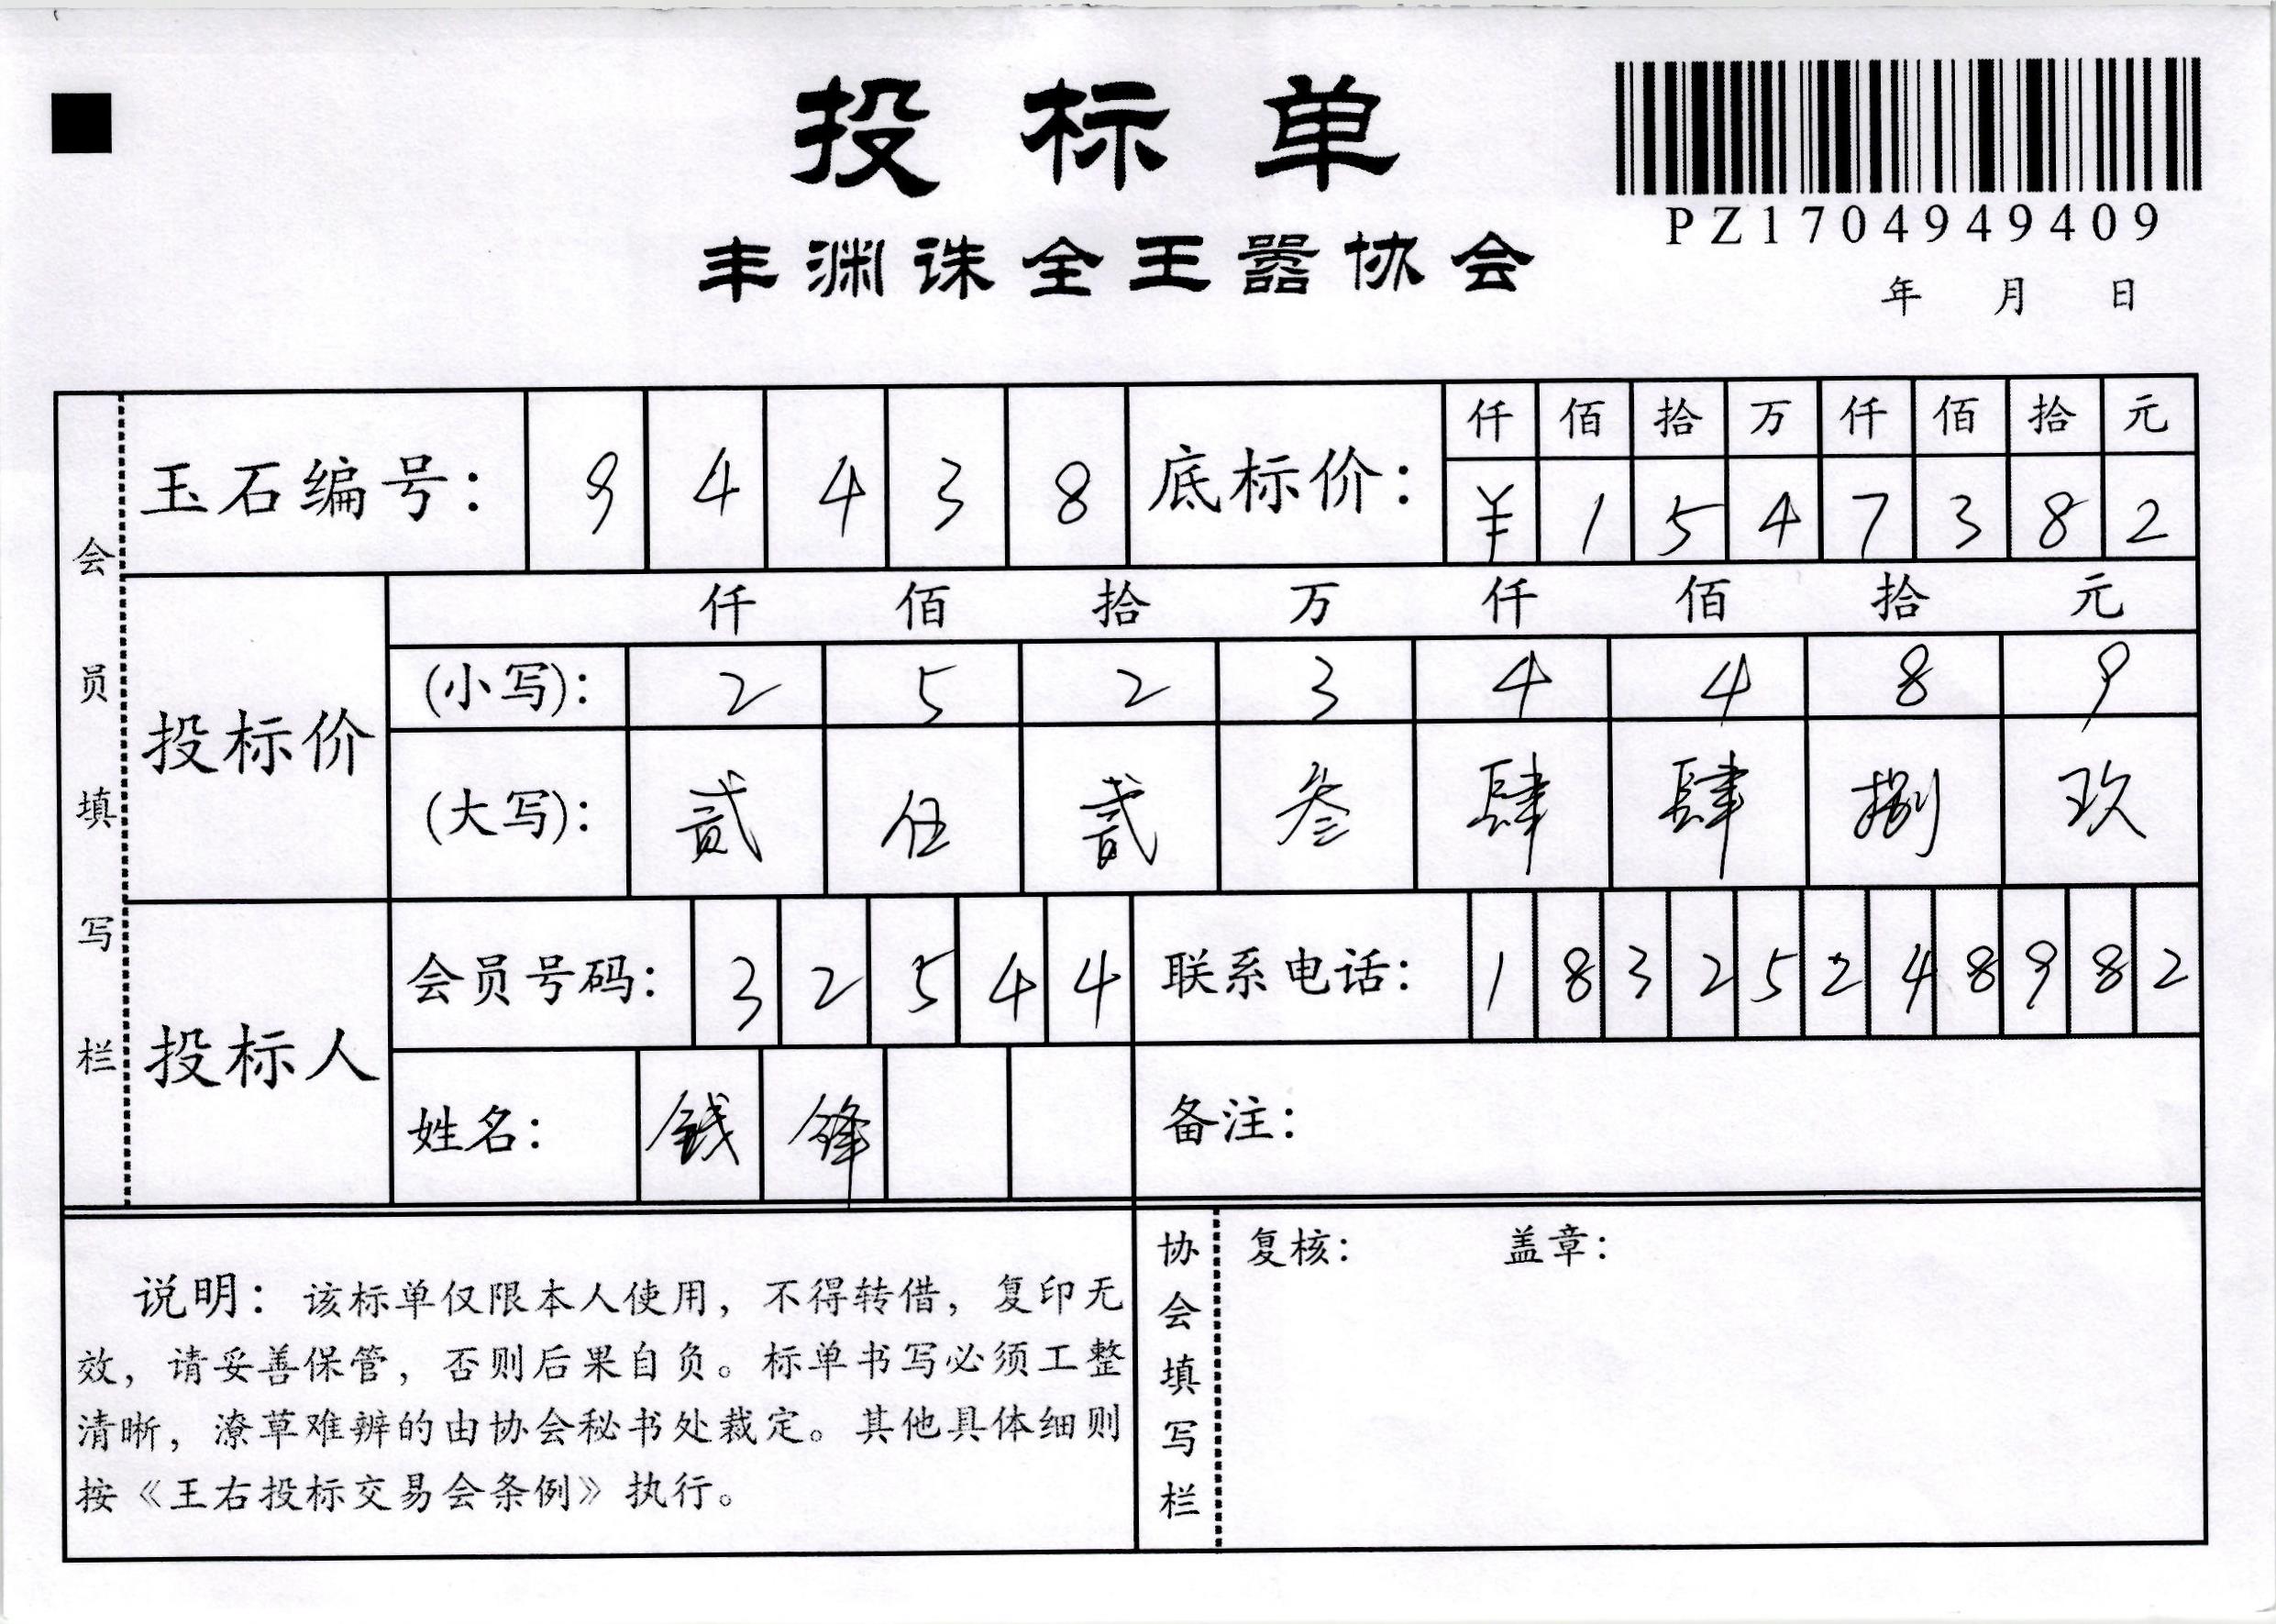 投标单
PZ1704949409
丰渊诛全王嚣协会
年 月 日
会员填写栏
玉石编号: 9 4 4 3 8
底标价:
仟 佰 拾 万 仟 佰 拾 元
¥ 1 5 4 7 3 8 2
投标价
仟 佰 拾 万 仟 佰 拾 元
(小写): 2 5 2 3 4 4 8 9
(大写): 贰 伍 贰 叁 肆 肆 捌 玖
投标人
会员号码: 3 2 5 4 4
联系电话: 1 8 3 2 5 2 4 8 9 8 2
姓名: 钱 锋
备注:
说明: 该标单仅限本人使用，不得转借，复印无
效，请妥善保管，否则后果自负。标单书写必须工整
清晰，潦草难辨的由协会秘书处裁定。其他具体细则
按《王右投标交易会条例》执行。
协会填写栏
复核: 盖章: